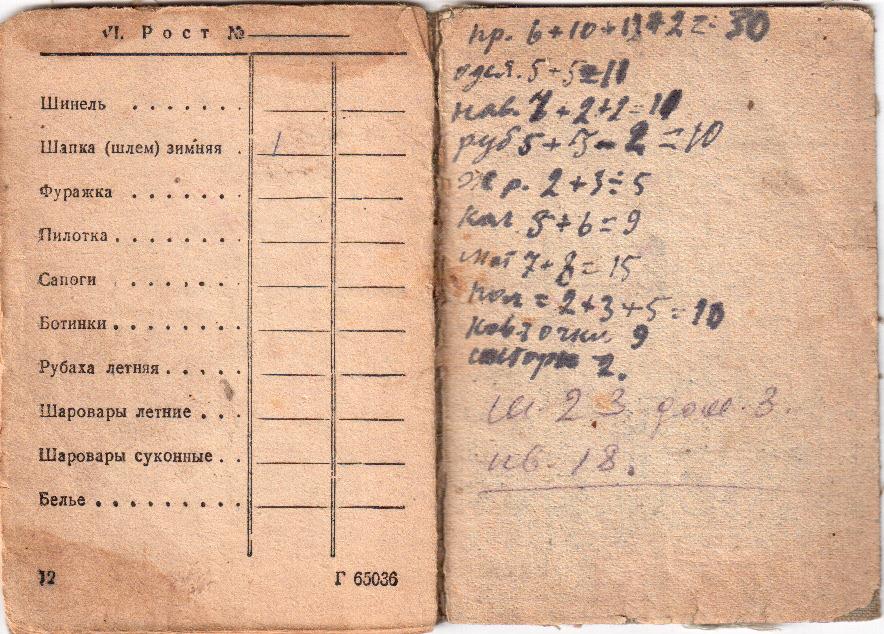 VI. Рост №
Шинель . . . . . . .
Шапка (шлем) зимняя . 1
Фуражка . . . . . .
Пилотка . . . . . . .
Сапоги . . . . . . .
Ботинки . . . . . . .
Рубаха летняя . . . . .
Шаровары летние . . .
Шаровары суконные . .
Белье . . . . . . . . .
12 Г 65036
пр. 6+10+ = 30
одея. 5+5=11
нав. 7+2+1=10
руб 5+ - 2 =10
р. 2+3=5
+6=9
мат 7+8=15
пол = 2+3+5=10
9
шторы 2.
23 дом. 3.
кв. 18.